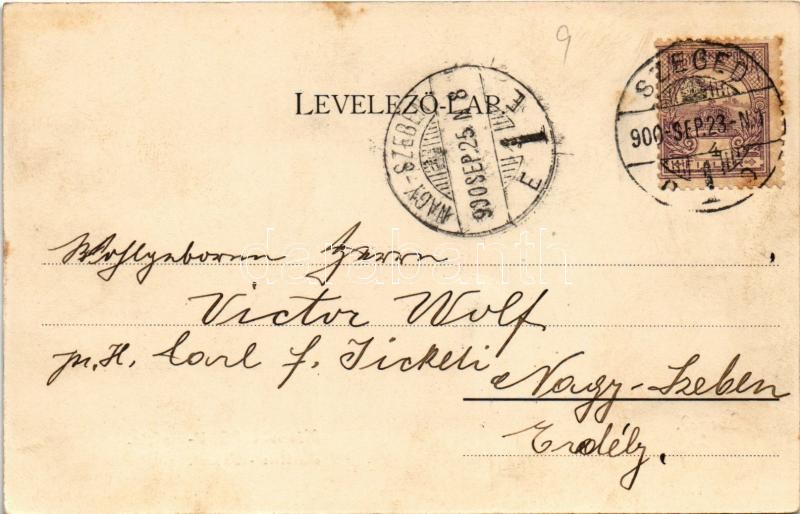 9
LEVELEZŐ-LAP
NAGY-SZEBEN
900 SEP. 25 N. 8
SZEGED
900-SEP. 23-N. 1
4
darabanth
Wohlgeboren Herrn
Victor Wolf
pr. H. Carl f. Jickeli
Nagy-Szeben
Erdély.